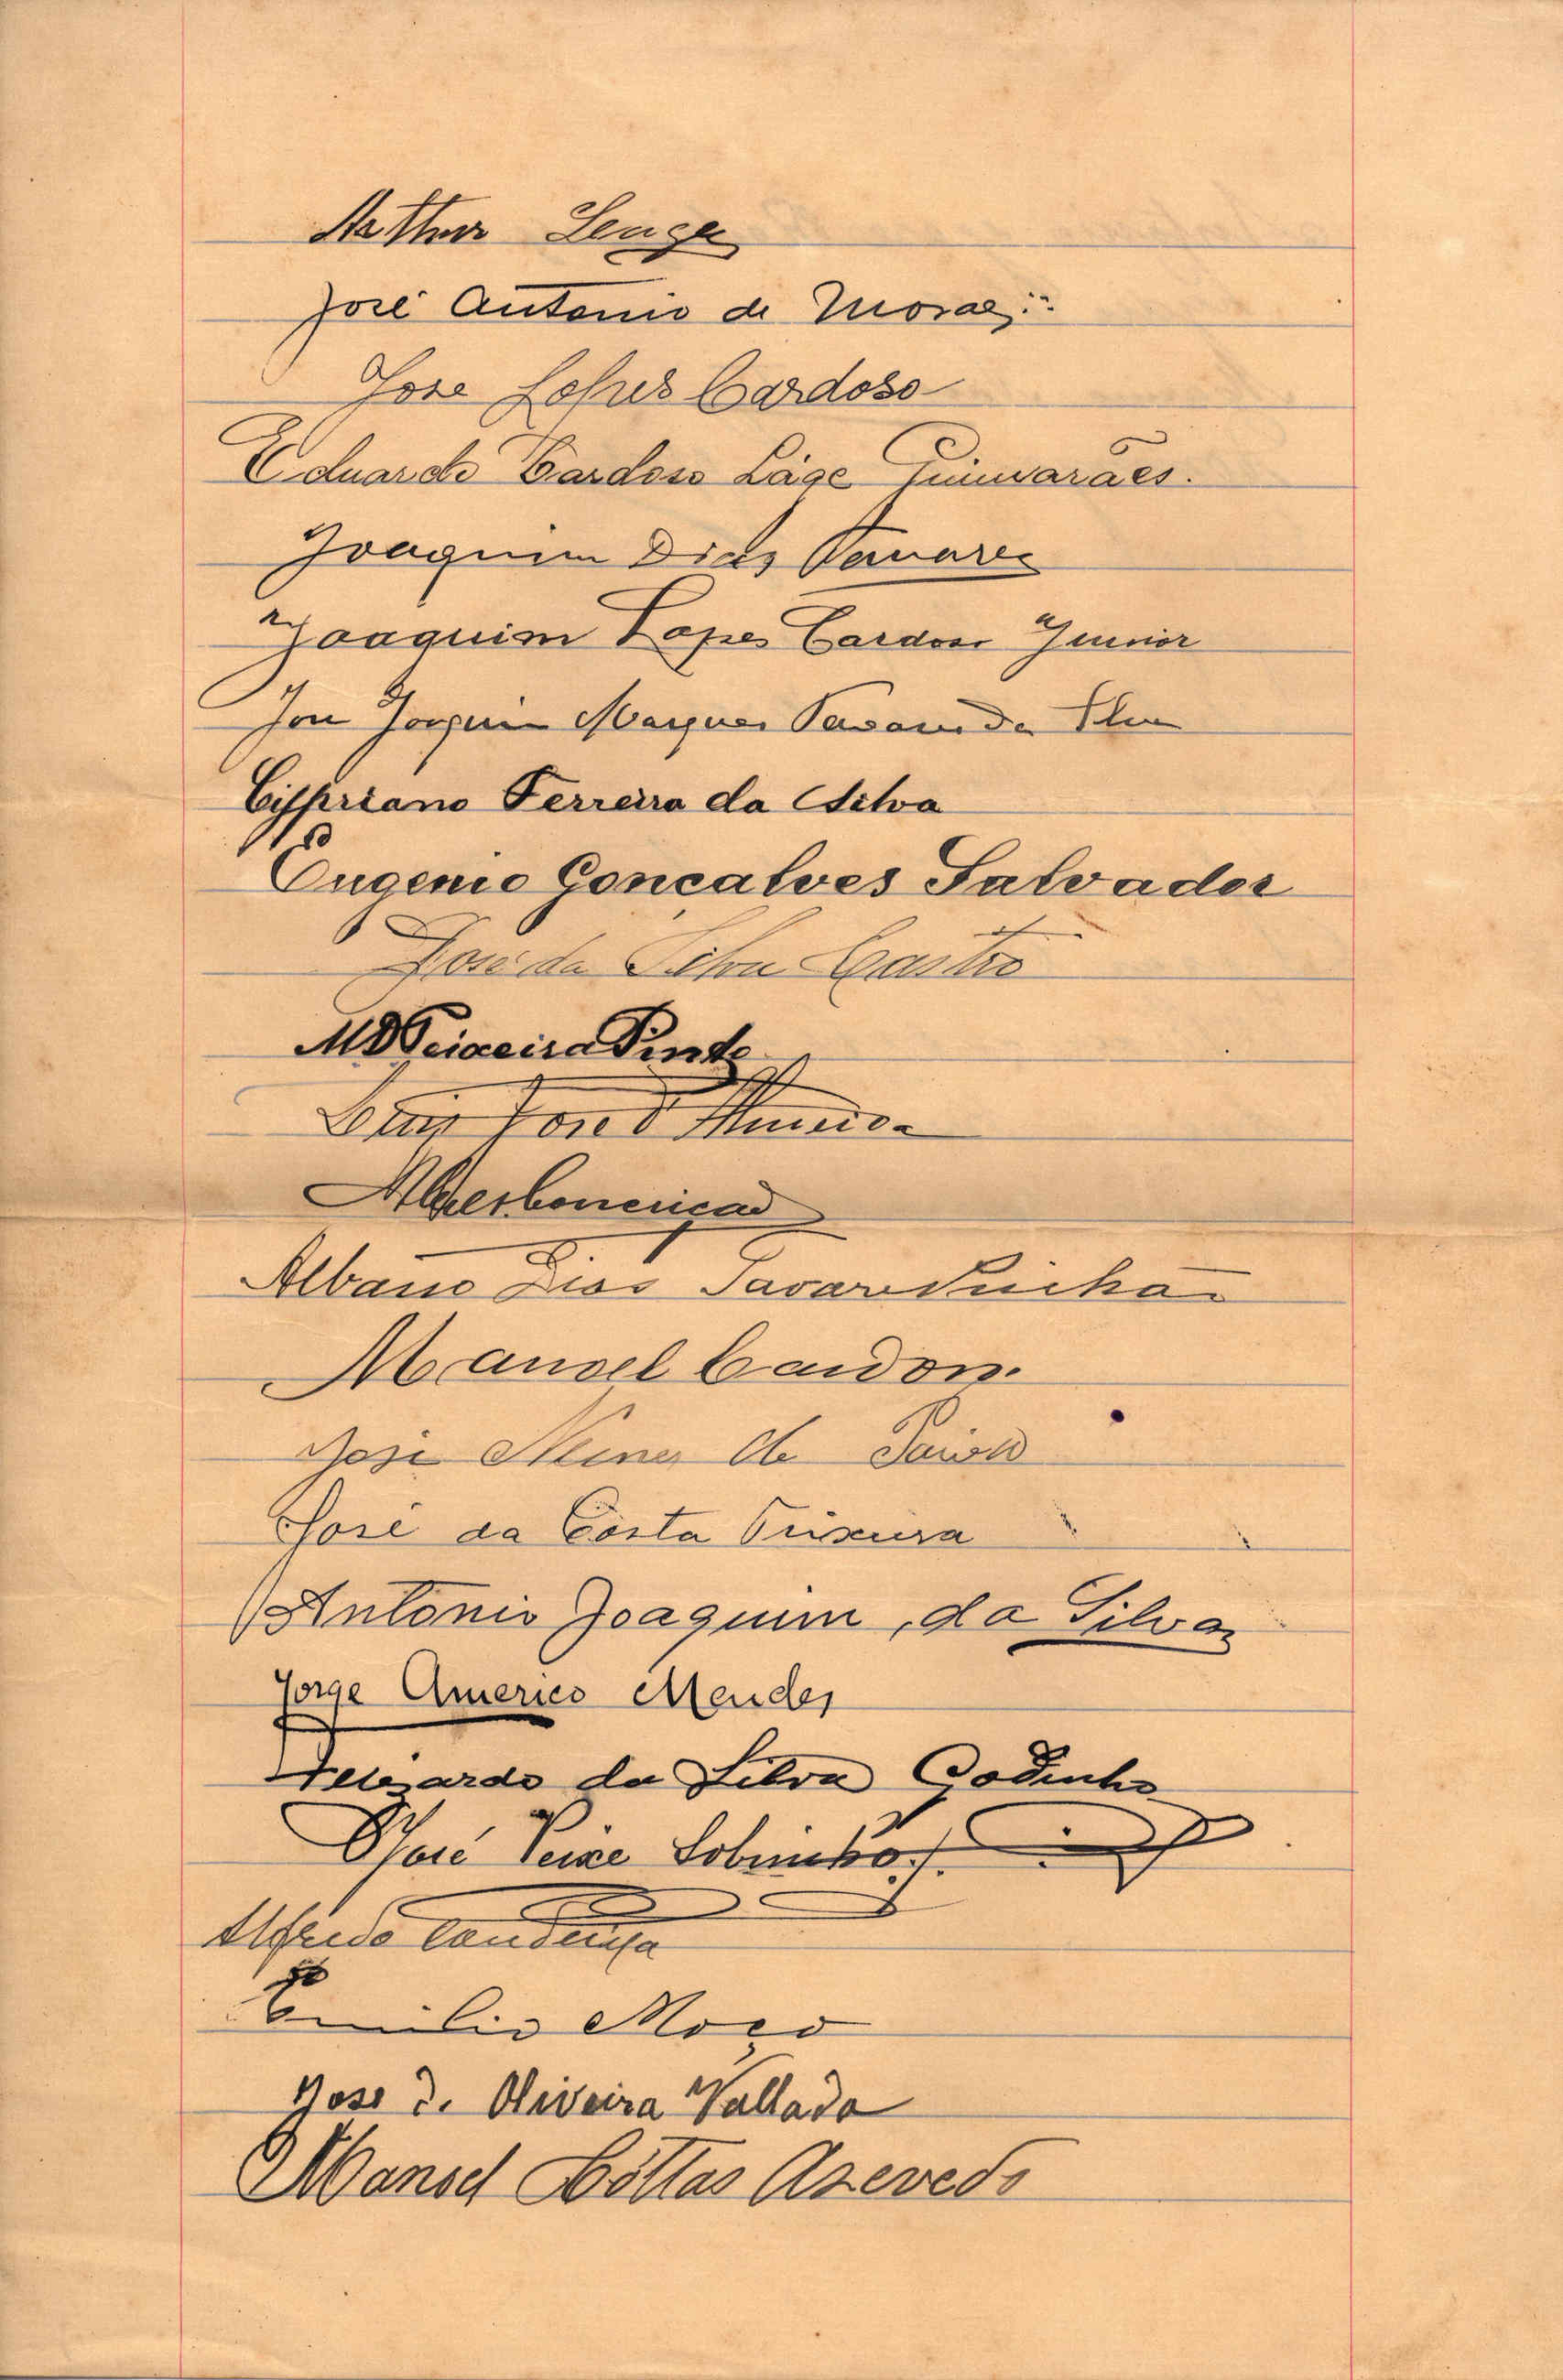 Arthur
José Antonio de Moraes
Jose Lopes Cardoso
Eduardo Cardoso Lage Guimarães.
Joaquim Dias Tavares
Joaquim Lopes Cardoso Junior
Joaquim Marques da Silva
Cypriano Ferreira da Silva
Eugenio Goncalves Salvador
José da Silva Castro
Teixeira Pinto
Luiz José
Albano Dias
Manoel Cardoso
de
José da Costa Teixeira
Antonio Joaquim da Silva
Jorge Americo Mendes
da Silva Godinho
José Peixe Sobrinho
Alfredo
Emilio Moço
Jose d. Oliveira Vallada
Manoel Cottas Azevedo